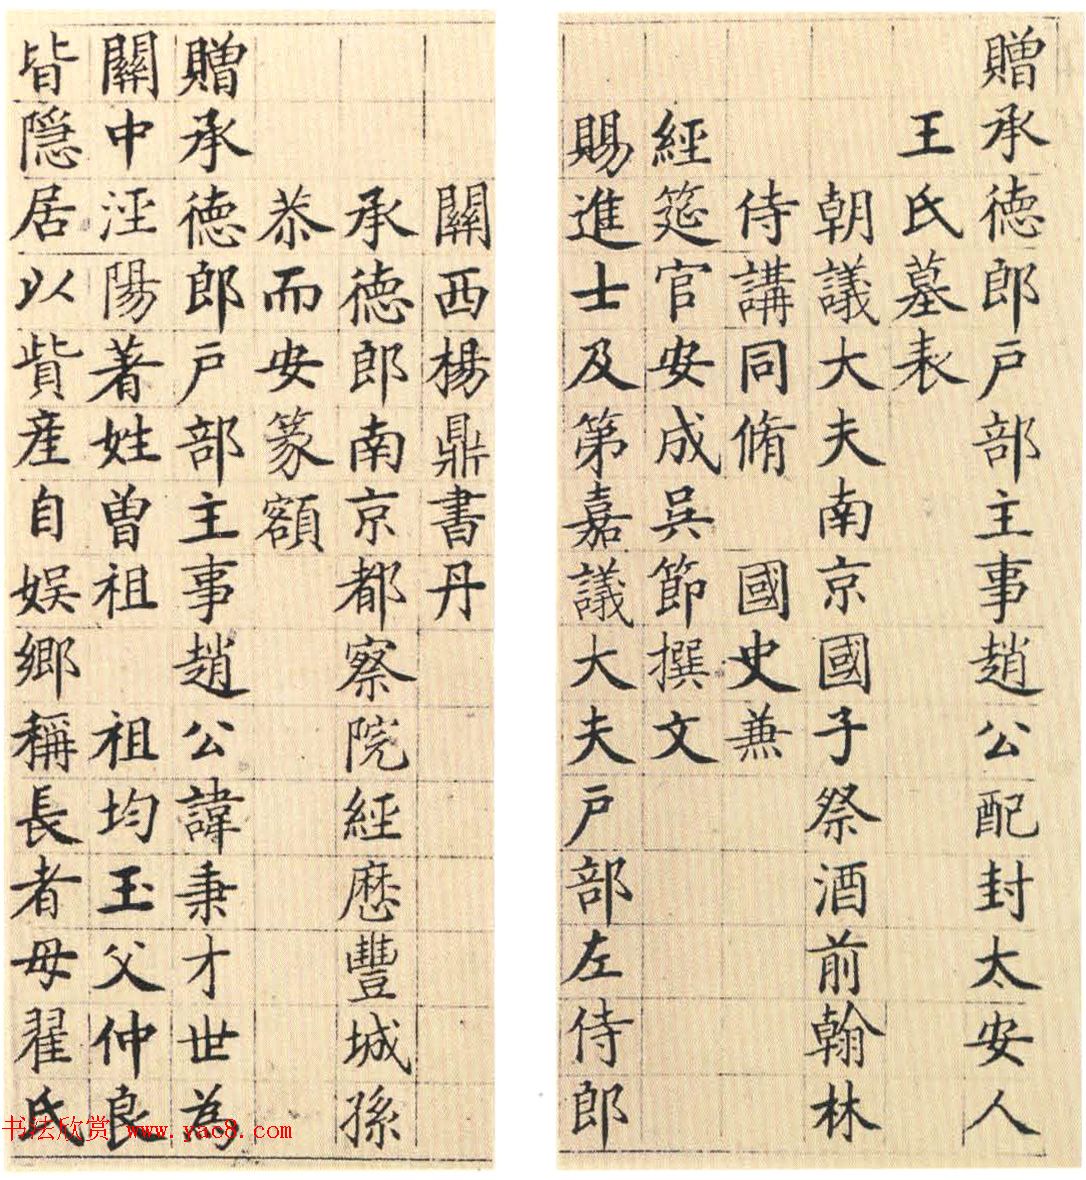 贈承德郎戶部主事趙公配封太安人
王氏墓表
朝議大夫南京國子祭酒前翰林
侍講同脩 國史兼
經筵官安成吳節撰文
賜進士及第嘉議大夫戶部左侍郎
關西楊鼎書丹
承德郎南京都察院經歷豐城孫
恭而安篆額
贈承德郎戶部主事趙公諱秉才世為
關中涇陽著姓曾祖 祖均玉父仲良
皆隱居以貲産自娛鄉稱長者母翟氏
书法欣赏 www.yac8.com